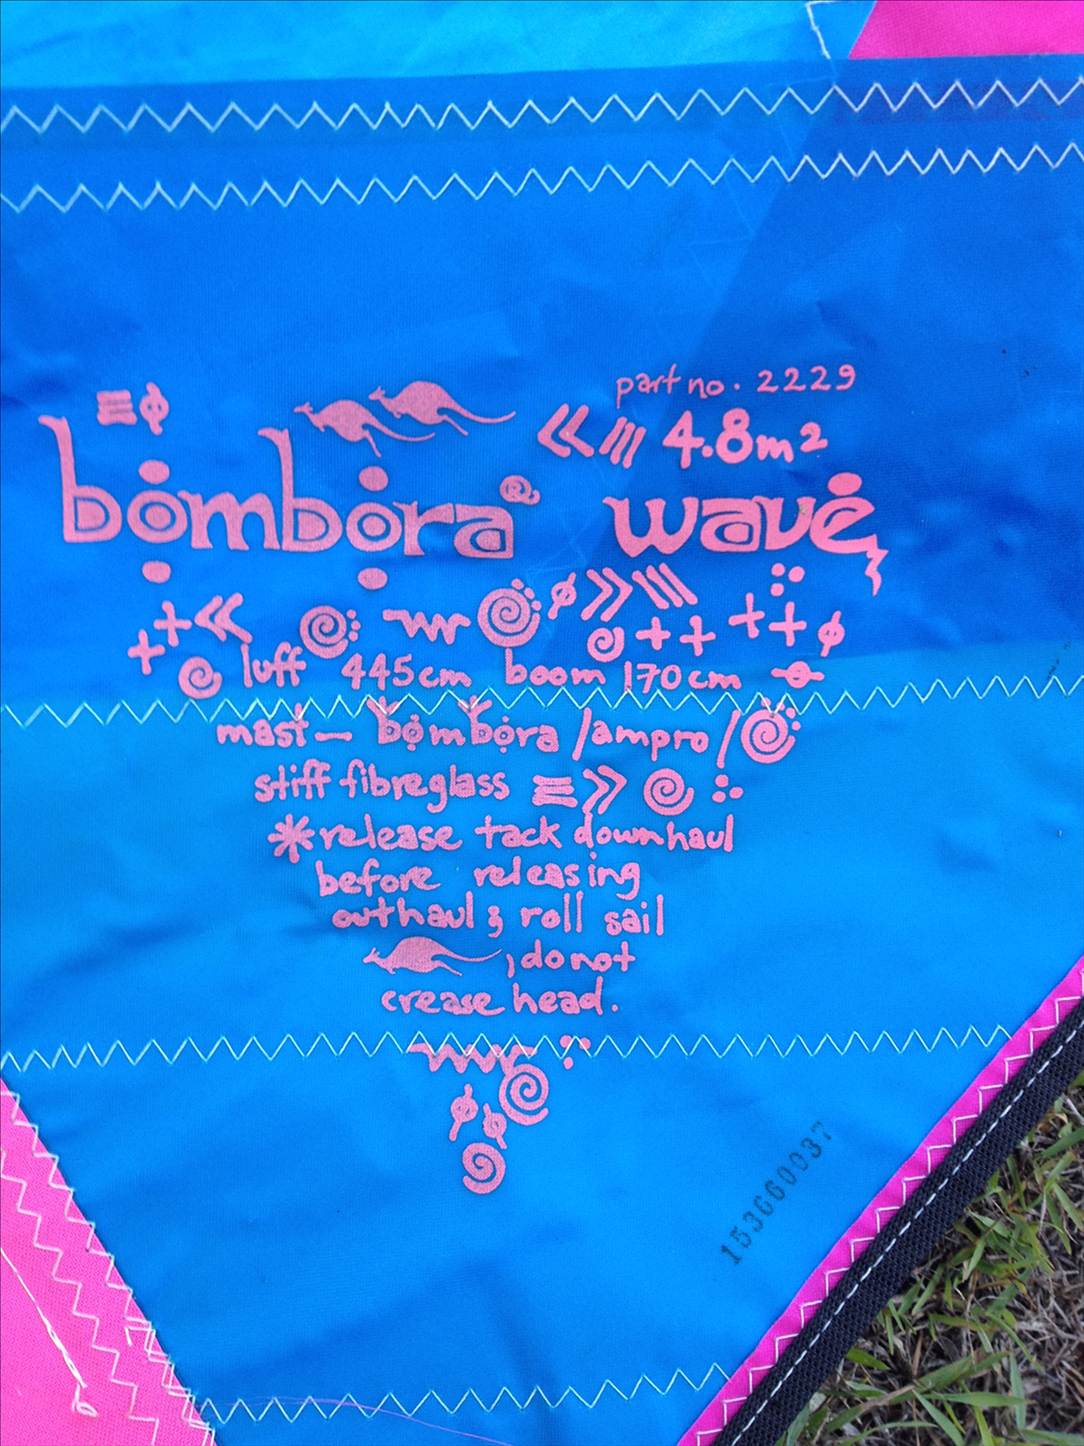 part no. 2229
4.8m2
bombora wave
luff 445cm boom 170cm
mast— bombora /ampro/
stiff fibreglass
*release tack downhaul
before releasing
outhaul & roll sail
, do not
crease head.
153660037